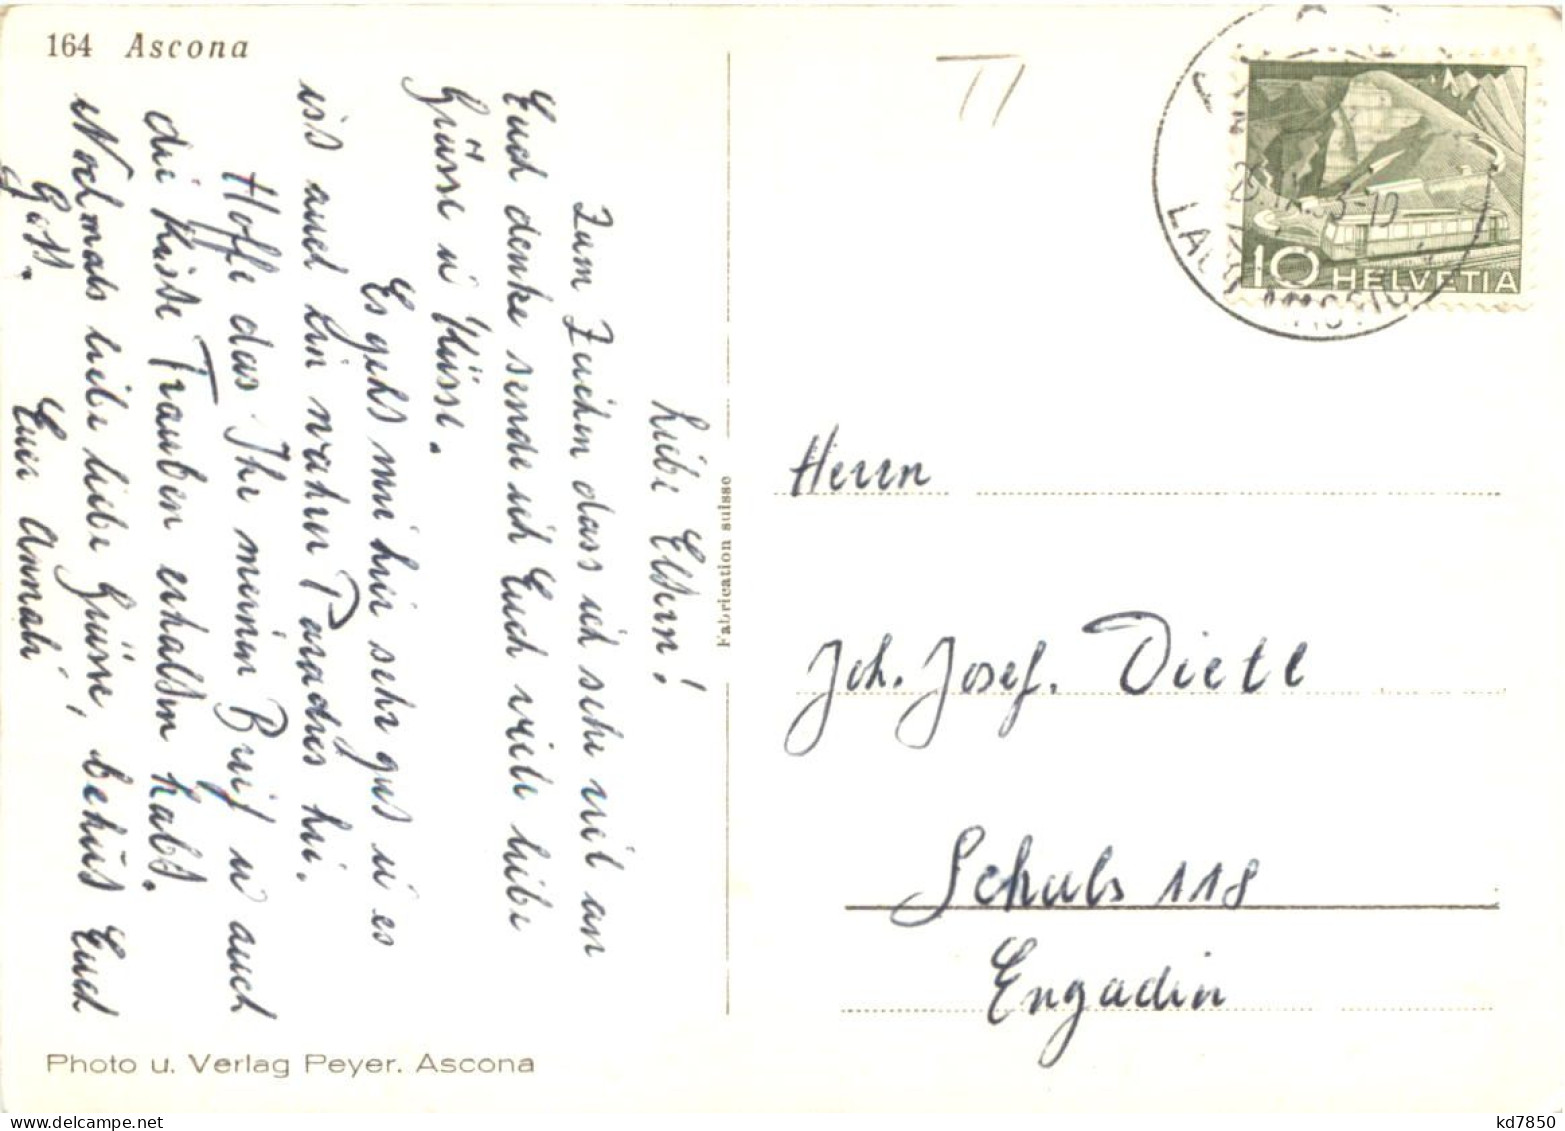 164 Ascona
Liebe Eltern!
Zum Zeichen dass ich sehr viel an
Euch denke sende ich Euch viele liebe
Grüsse u Küsse.
Es geht mir hier sehr gut u es
ist auch ein wahres Paradies hier.
Hoffe das Ihr meinen Brief u auch
die Kiste Trauben erhalten habt.
Nochmals liebe liebe Grüsse, behüt Euch
Gott.
Eure Annali
Fabrication suisse
Photo u. Verlag Peyer. Ascona
10 HELVETIA
Herrn
Joh. Josef. Dietl
Schuls 118
Engadin
kd7850